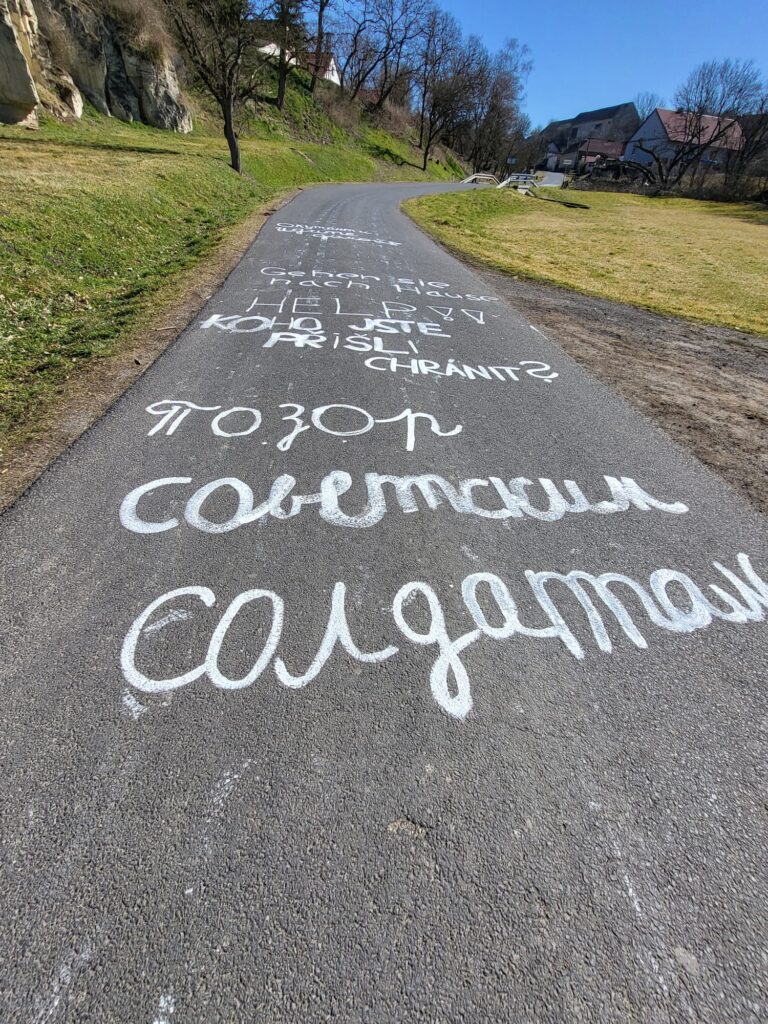 Gehen sie
nach Hause
HELP!!
KOHO JSTE
PŘIŠLI
CHRÁNIT?
Позор
советским
салдатам